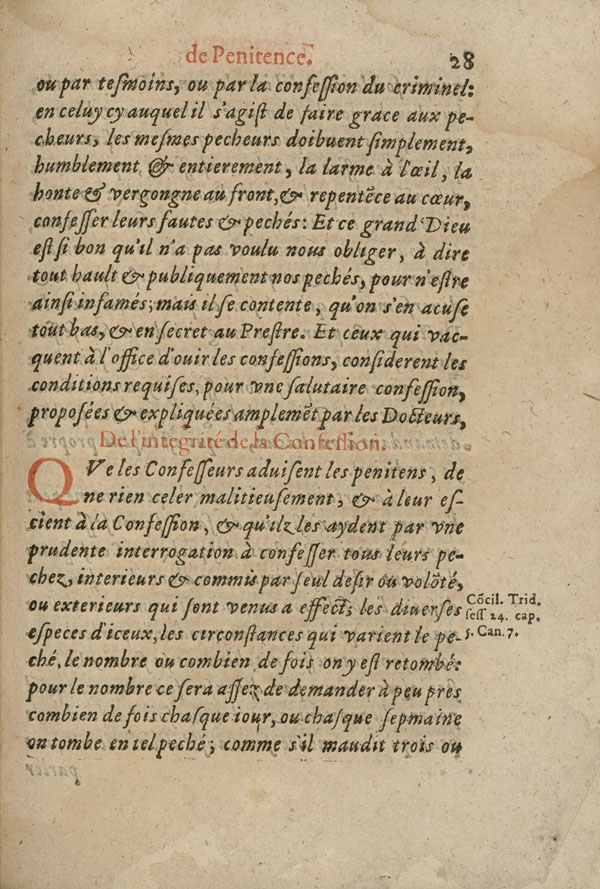 de Penitence. 28
ou par tesmoins, ou par la confession du criminel:
en celuy cy auquel il s'agist de faire grace aux pe-
cheurs, les mesmes pecheurs doibuent simplement,
humblement & entierement, la larme à l'œil, la
honte & vergongne au front, & repentẽce au cœur,
confesser leurs fautes & pechés: Et ce grand Dieu
est si bon qu'il n'a pas voulu nous obliger, à dire
tout hault & publiquement nos pechés, pour n'estre
ainsi infamés; mais il se contente, qu'on s'en acuse
tout bas, & en secret au Prestre. Et ceux qui vac-
quent à l'office d'ouir les confessions, considerent les
conditions requises, pour vne salutaire confession,
proposées & expliquées amplemẽt par les Docteurs,
De l'integrité de la Confession.
QVe les Confesseurs aduisent les penitens, de
ne rien celer malitieusement, & à leur es-
cient à la Confession, & qu'ilz les aydent par vne
prudente interrogation à confesser tous leurs pe-
chez, interieurs & commis par seul desir ou volõté,
ou exterieurs qui sont venus a effect; les diuerses
especes d'iceux, les circonstances qui varient le pe-
ché, le nombre ou combien de fois on y est retombé:
pour le nombre ce sera assez de demander à peu pres
combien de fois chasque iour, ou chasque sepmaine
on tombe en tel peché; comme s'il maudit trois ou
Cõcil. Trid.
sess 24. cap.
5. Can. 7.